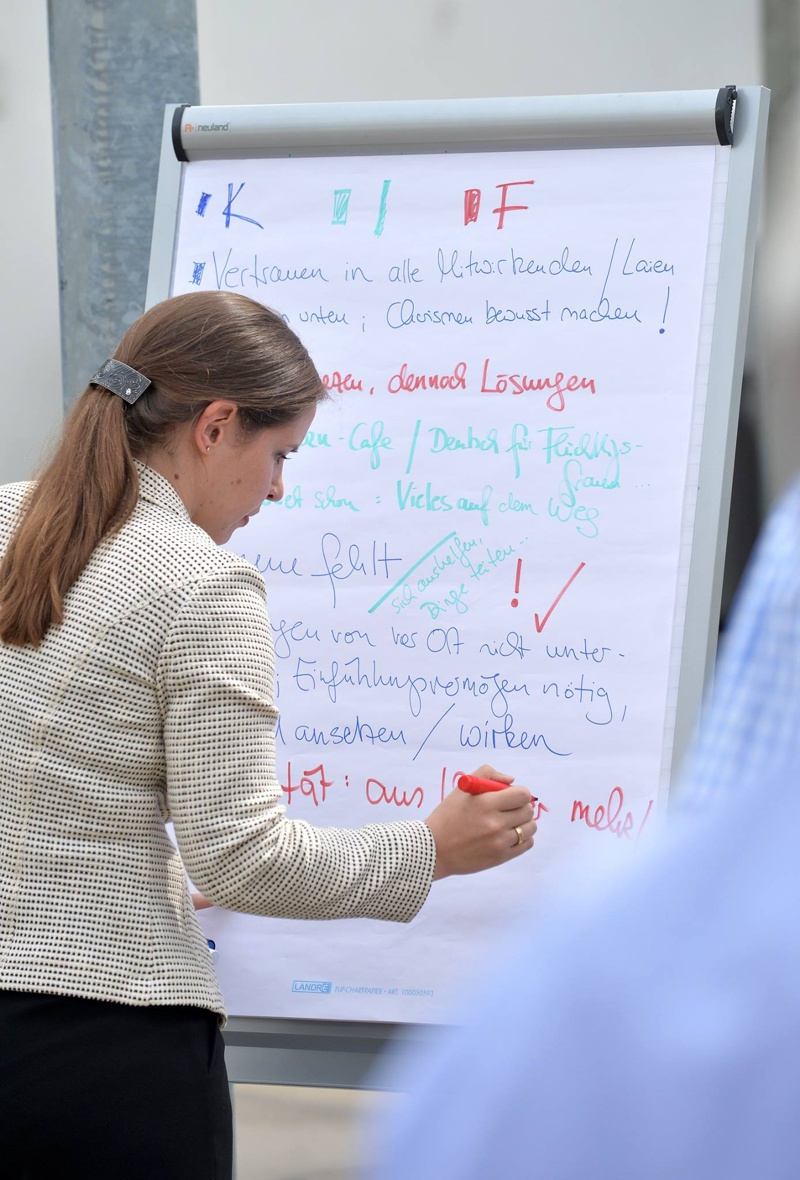 neuland
K I F
Vertrauen in alle Mitwirkenden / Laien
unten ; Charismen bewusst machen !
dennoch Lösungen
-Cafe / Deutsch für Flüchtlgs-
frauen ...
schon : Vieles auf dem Weg
fehlt
sich aushelfen,
Dinge teilen...
! ✓
von vor Ort nicht unter-
Einfühlungsvermögen nötig,
ansetzen / wirken
tät : aus mehr
LANDRÉ FLIP-CHARTPAPIER • ART. 100050593